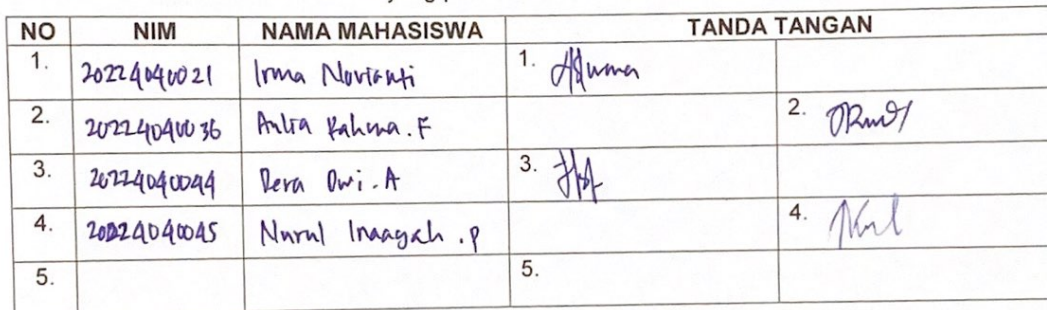 NO NIM NAMA MAHASISWA TANDA TANGAN
1. 20224040021 Irma Novianti 1.
2. 20224040036 Aulia Rahma. F 2.
3. 20224040044 Dera Dwi. A 3.
4. 20224040045 Nurul Inaayah .P 4.
5. 5.